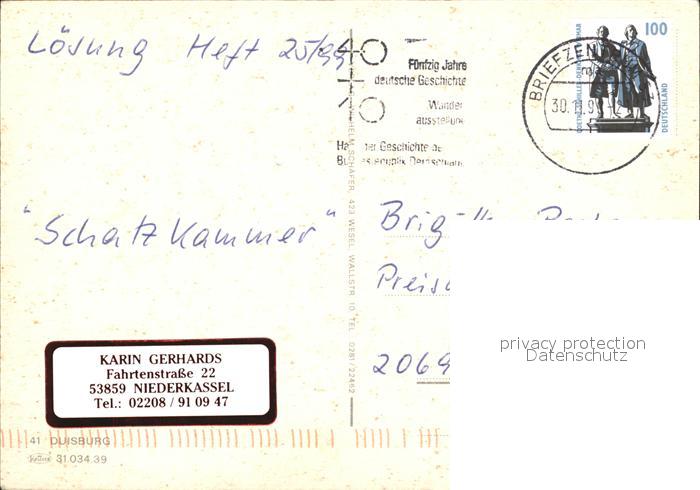 Lösung Heft 25/99
Fünfzig Jahre
deutsche Geschichte
Wander
ausstellung
Haus der Geschichte der
Bundesrepublik Deutschland
BRIEFZEN
30.11.9
100
DEUTSCHLAND
SCHÄFER, 423 WESEL, WALLSTR. 10, TEL. 0281/22462
"Schatzkammer"
Preis
2069
privacy protection
Datenschutz
KARIN GERHARDS
Fahrtenstraße 22
53859 NIEDERKASSEL
Tel.: 02208 / 91 09 47
41 DUISBURG
31.034.39